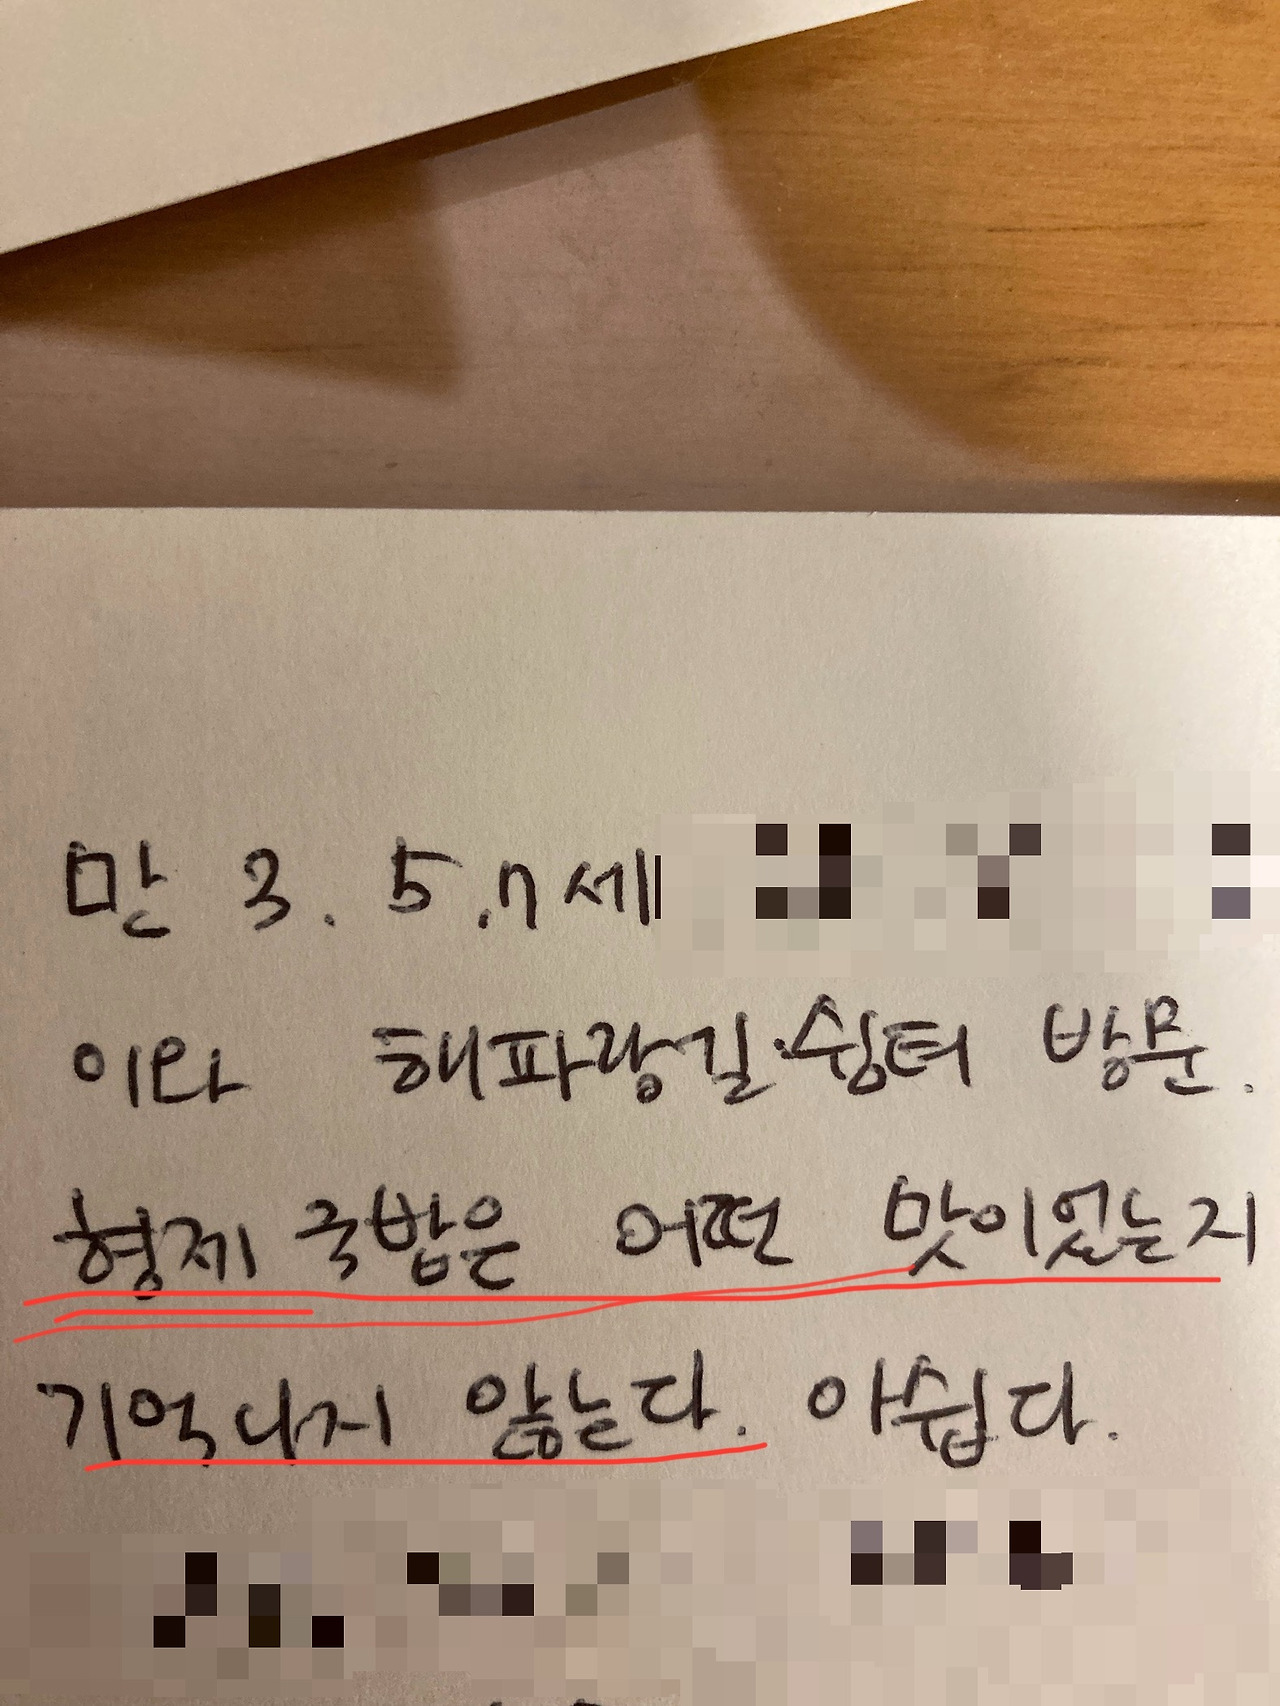 만 3. 5.7세
이와 해파랑길.쉼터 방문.
형제 국밥은 어떤 맛이었는지
기억나지 않는다. 아쉽다.